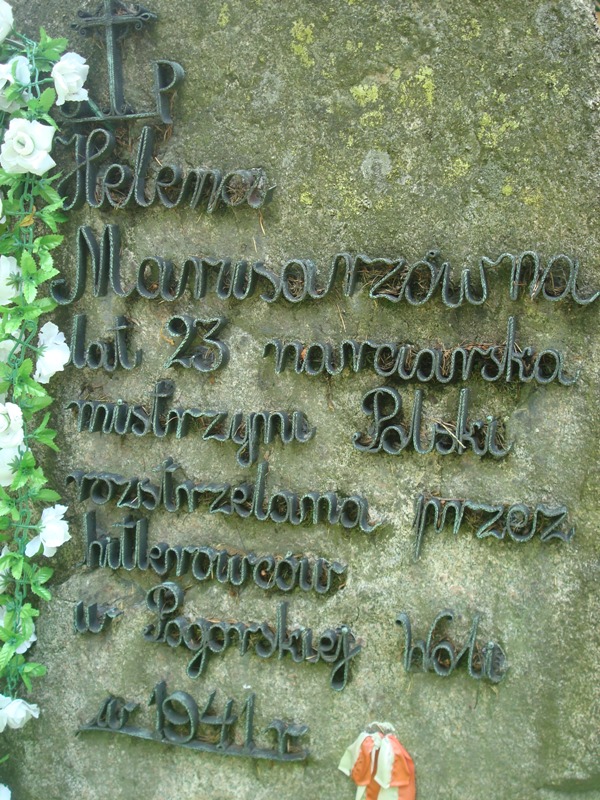 Ś P
Helena
Marusarzówna
lat 23 narciarska
mistrzyni Polski
rozstrzelana przez
hitlerowców
w Pogorskiej Woli
w 1941 r